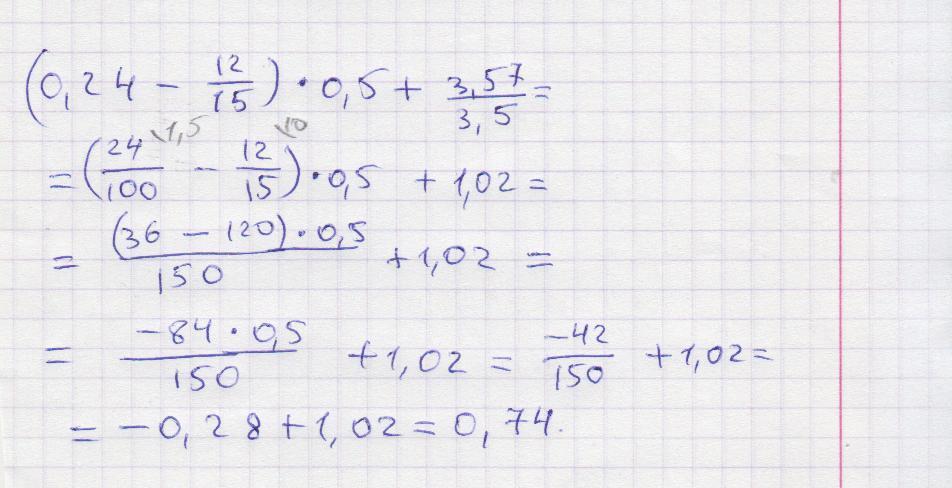 (0,24 - 12/15) · 0,5 + 3,57/3,5 =
= (24/100 \1,5 - 12/15 \10) · 0,5 + 1,02 =
= (36 - 120) · 0,5/150 + 1,02 =
= -84 · 0,5/150 + 1,02 = -42/150 + 1,02 =
= -0,28 + 1,02 = 0,74.